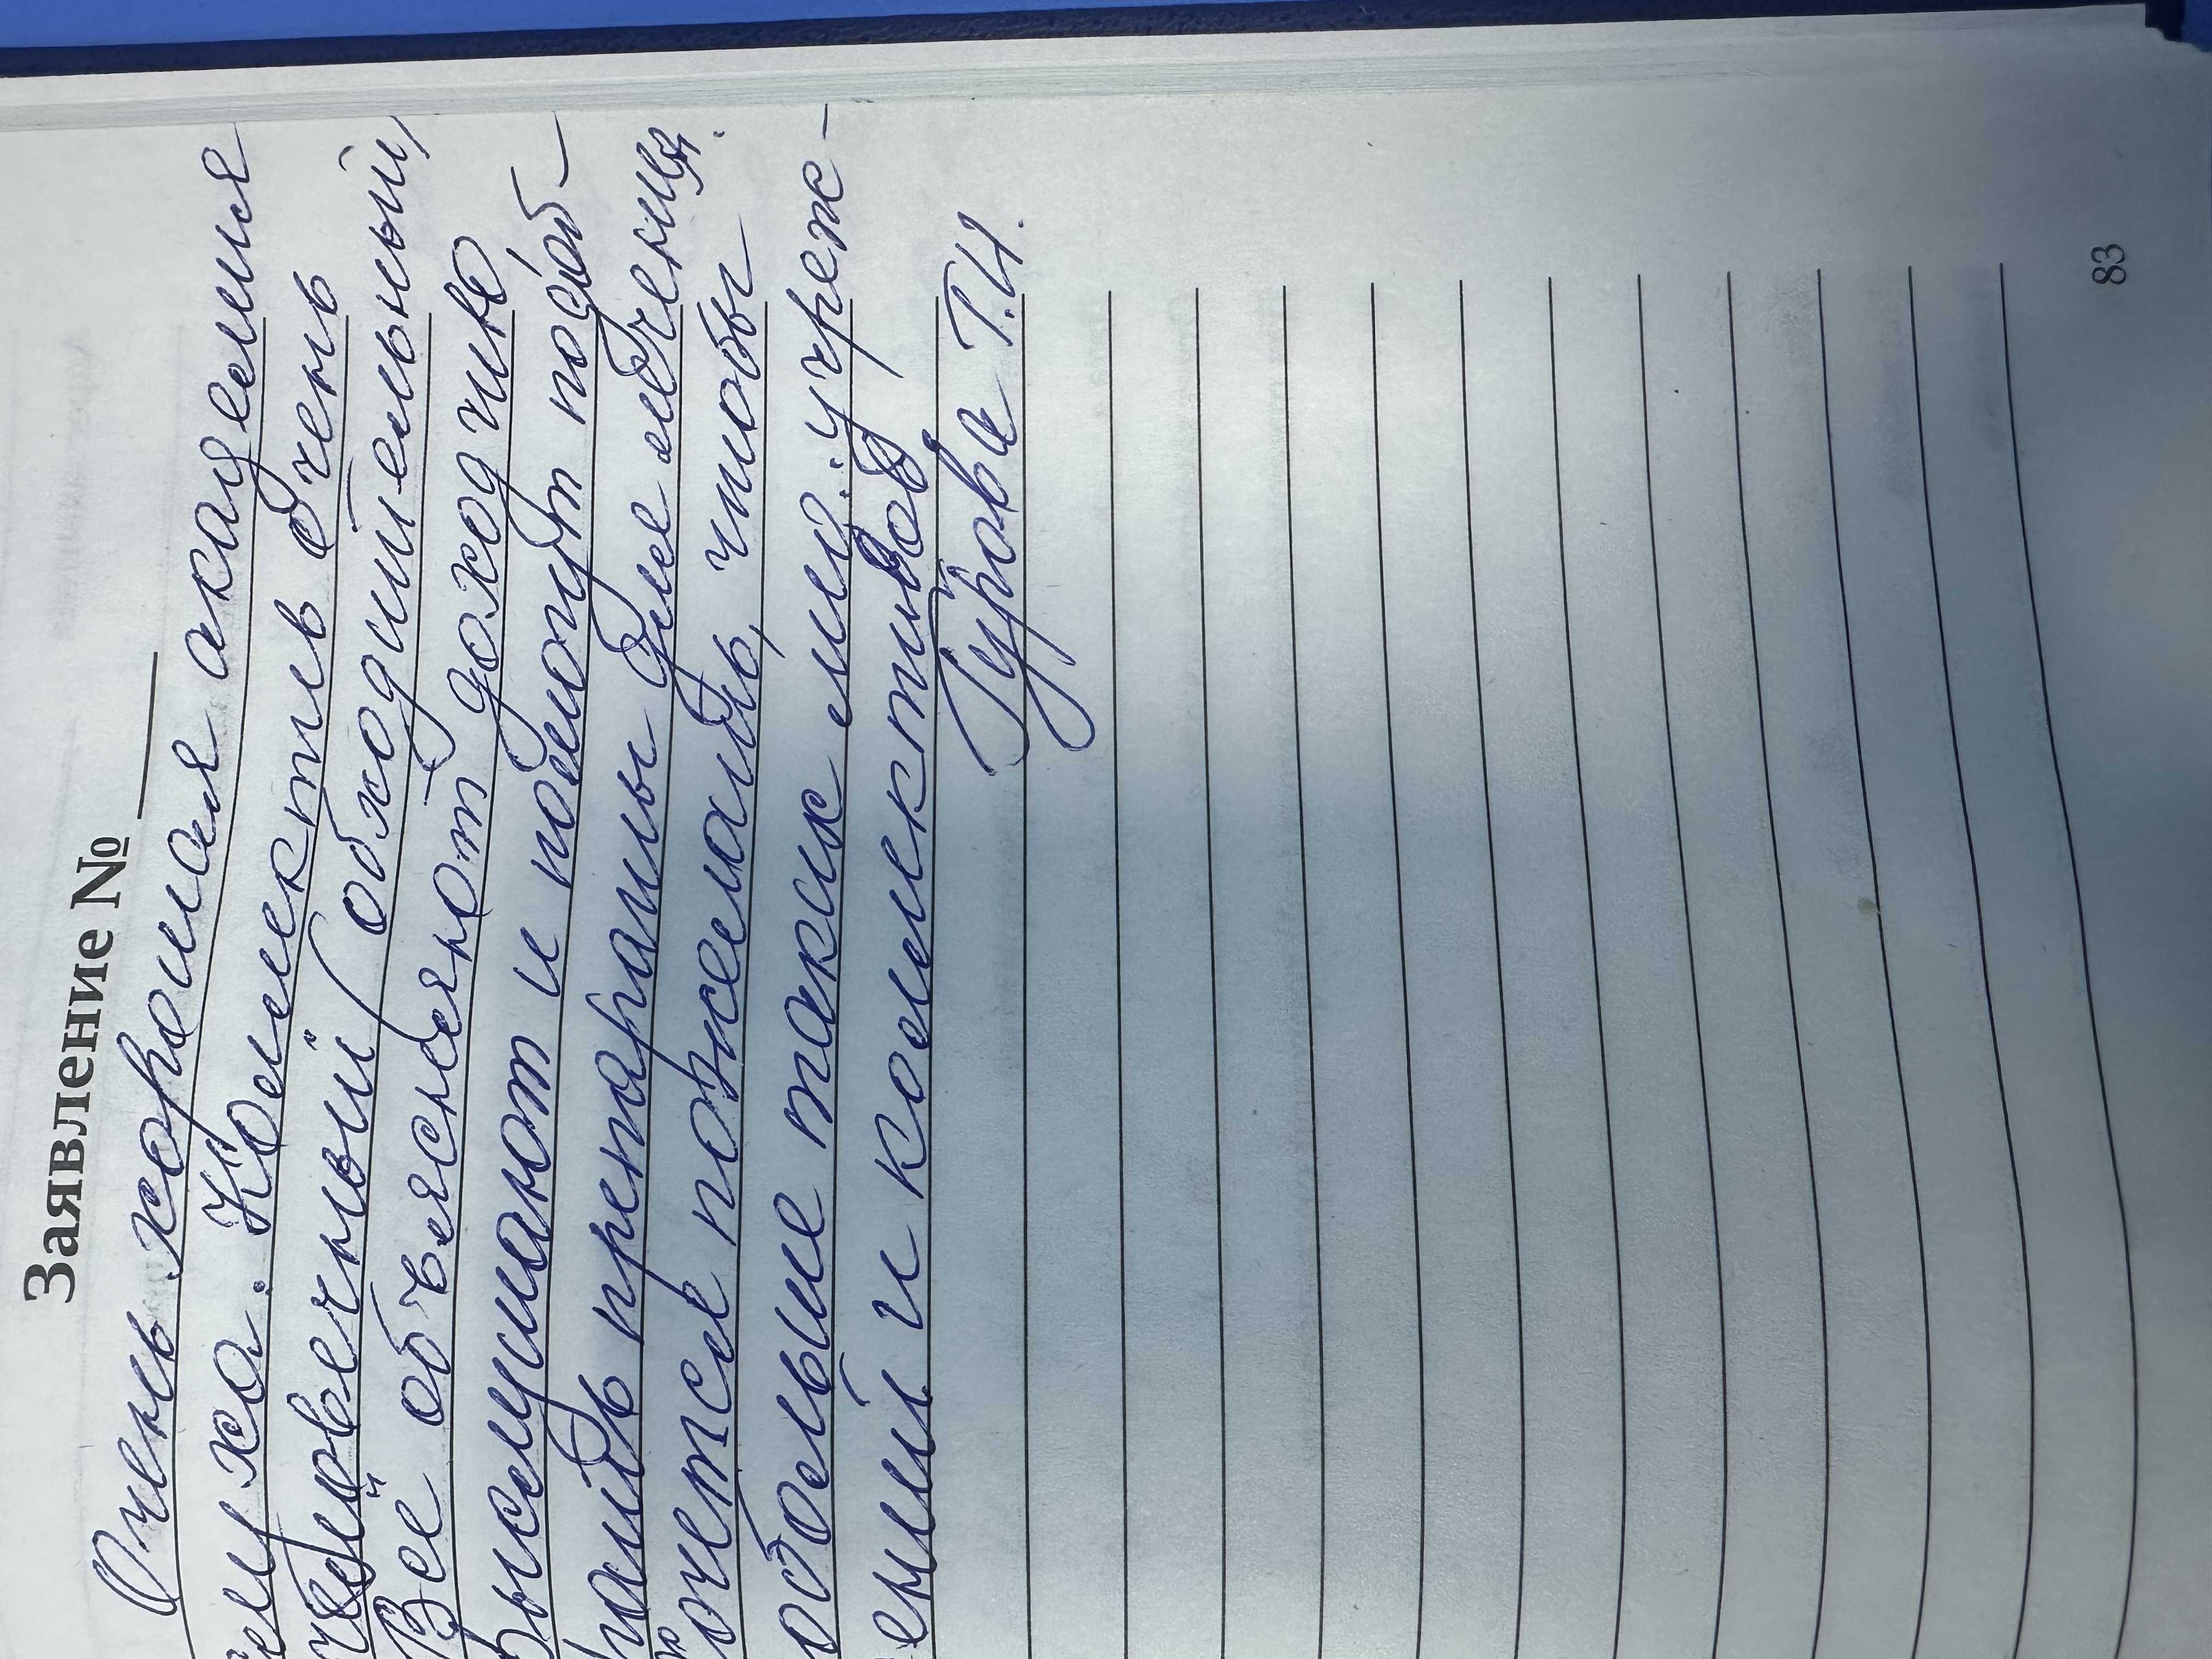 Заявление №
Очень хорошая академия
слуха. Колектив очень
человечный (обходительный)
Все объясняют доходчиво
выслушают и помогут подоб-
рать препараты для лечения.
Хочется пожелать, чтобы
побольше таких мед. учреж-
дений и коллективов
Гурова Т.И.
83